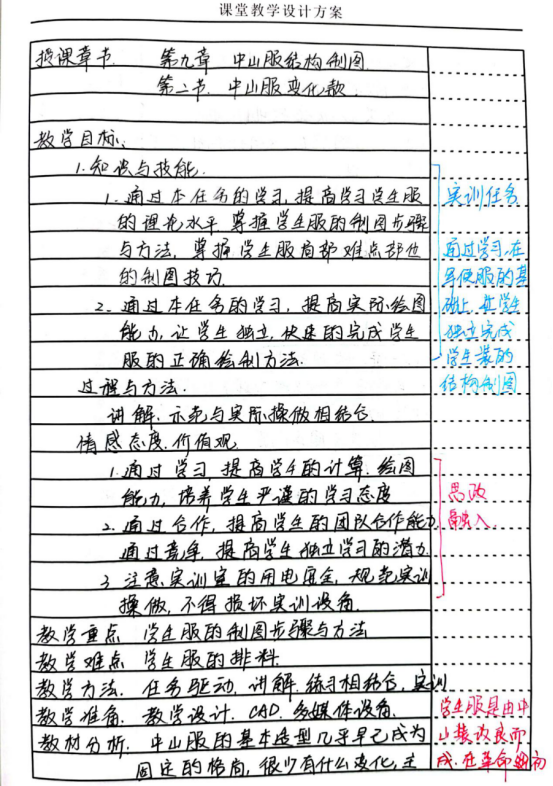 课堂教学设计方案
授课章节 第九章 中山服结构制图
第二节 中山服变化款
教学目标:
1.知识与技能.
1.通过本任务的学习,提高学习学生服
的理论水平 掌握学生服的制图步骤
与方法,掌握学生服局部难点部位
的制图技巧
2.通过本任务的学习,提高实际绘图
能力,让学生独立,快速的完成学生
服的正确绘制方法.
过程与方法.
讲解.示范与实际操做相结合.
情感态度.价值观
1.通过学习,提高学生的计算.绘图
能力,培养学生严谨的学习态度
2.通过合作,提高学生的团队合作能力
通过竞争,提高学生独立学习的潜力
3.注意实训室的用电安全,规范实训
操做,不得损坏实训设备
教学重点 学生服的制图步骤与方法
教学难点 学生服的排料
教学方法.任务驱动.讲解.练习相结合.实训
教学准备.教学设计.CAD.多媒体设备.
教材分析.中山服的基本造型几乎早已成为
固定的格局,很少有什么变化,主
实训任务
通过学习,在
军便服的基
础上,让学生
独立完成
学生装的
结构制图
思政
融入.
学生服是由中
山装改良而
成.在革命